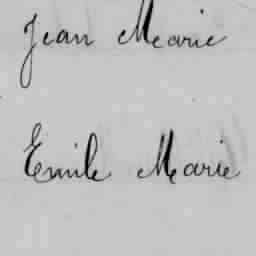 Jean Marie
Emile Marie